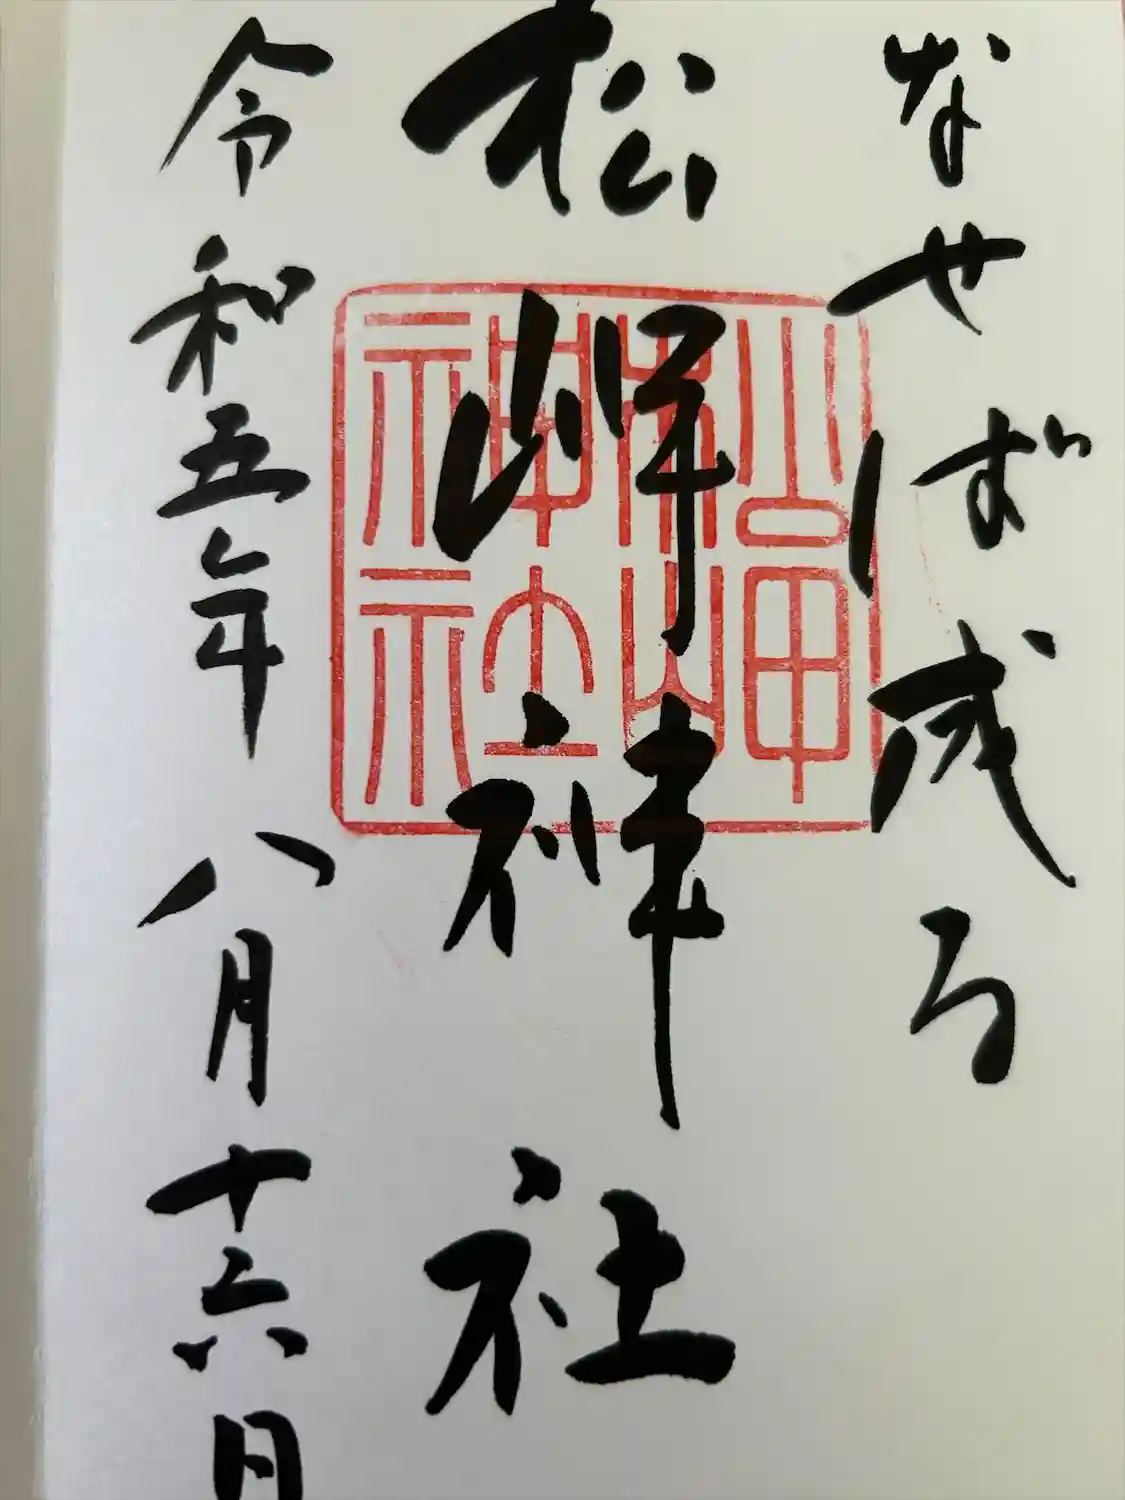 なせば成る
松岬神社
令和五年八月十六日
松岬神社